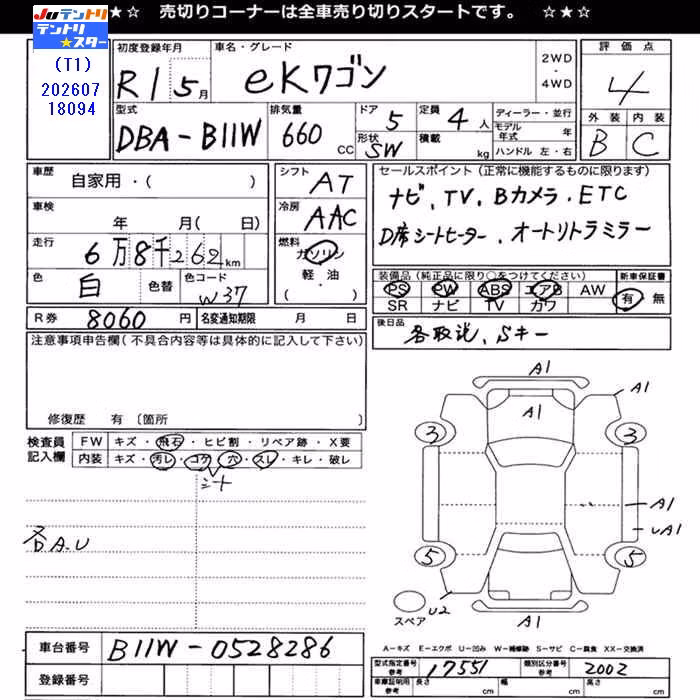 ☆★☆ 売切りコーナーは全車売り切りスタートです。 ☆★☆
JUテントリ
テントリ★スター
(T1)
202607
18094
初度登録年月 車名・グレード 2WD・4WD 評価点
R1 5月 eKワゴン 4
型式 排気量 ドア 定員 ディーラー・並行 外装 内装
DBA-B11W 660 CC 5 4人 モデル年式 年 B C
形状 SW 積載 kg ハンドル 左・右
車歴 自家用・( ) シフト AT
セールスポイント(正常に機能するものに限ります)
車検 年 月( 日) 冷房 AAC
ナビ、TV、Bカメラ、ETC
走行 6万8千262km 燃料 ガソリン 軽・油 ( )
D席シートヒーター、オートリトラミラー
色 白 色替 色コード W37
装備品(純正品に限り○をつけてください) 新車保証書
PS PW ABS エアB AW 有・無
SR ナビ TV カワ
R券 8060円 名変通知期限 月 日
後日品 各取説、Sキー
注意事項申告欄(不具合内容等は具体的に記入して下さい)
修復歴 有 〔箇所
検査員記入欄 FW キズ・飛石・ヒビ割・リペア跡・X要
内装 キズ・汚レ・コゲ・穴・スレ・キレ・破レ
シート
各A.U
A1
A1
3 3
A1
UA1
5 5
スペア U2 A1
A-キズ E-エクボ U-凹み W-補修跡 S-サビ C-腐食 XX-交換済
車台番号 B11W-0528286
型式指定番号 参考 17551 類別区分番号 参考 2002
登録番号
車庫証明用 参考 長さ cm 幅 cm 高さ cm